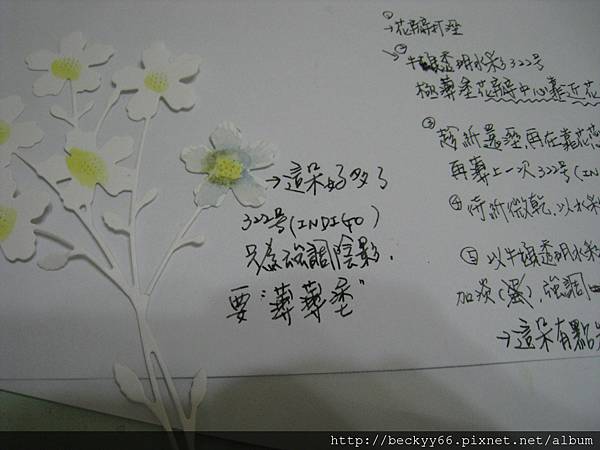 ① → 花瓣打溼
② 牛頓透明水彩322號
極薄塗花瓣中心靠近花
③ 趁紙還溼,再在靠花蕊
再薄上一次322號(IN
④ 待紙微乾,以水
⑤ 以牛頓透明水彩
加淡(),強調
→ 這朵有點
→ 這朵好多了
322號(INDIGO)
只為強調陰影,
要"薄薄塗"
http://beckyy66.pixnet.net/album